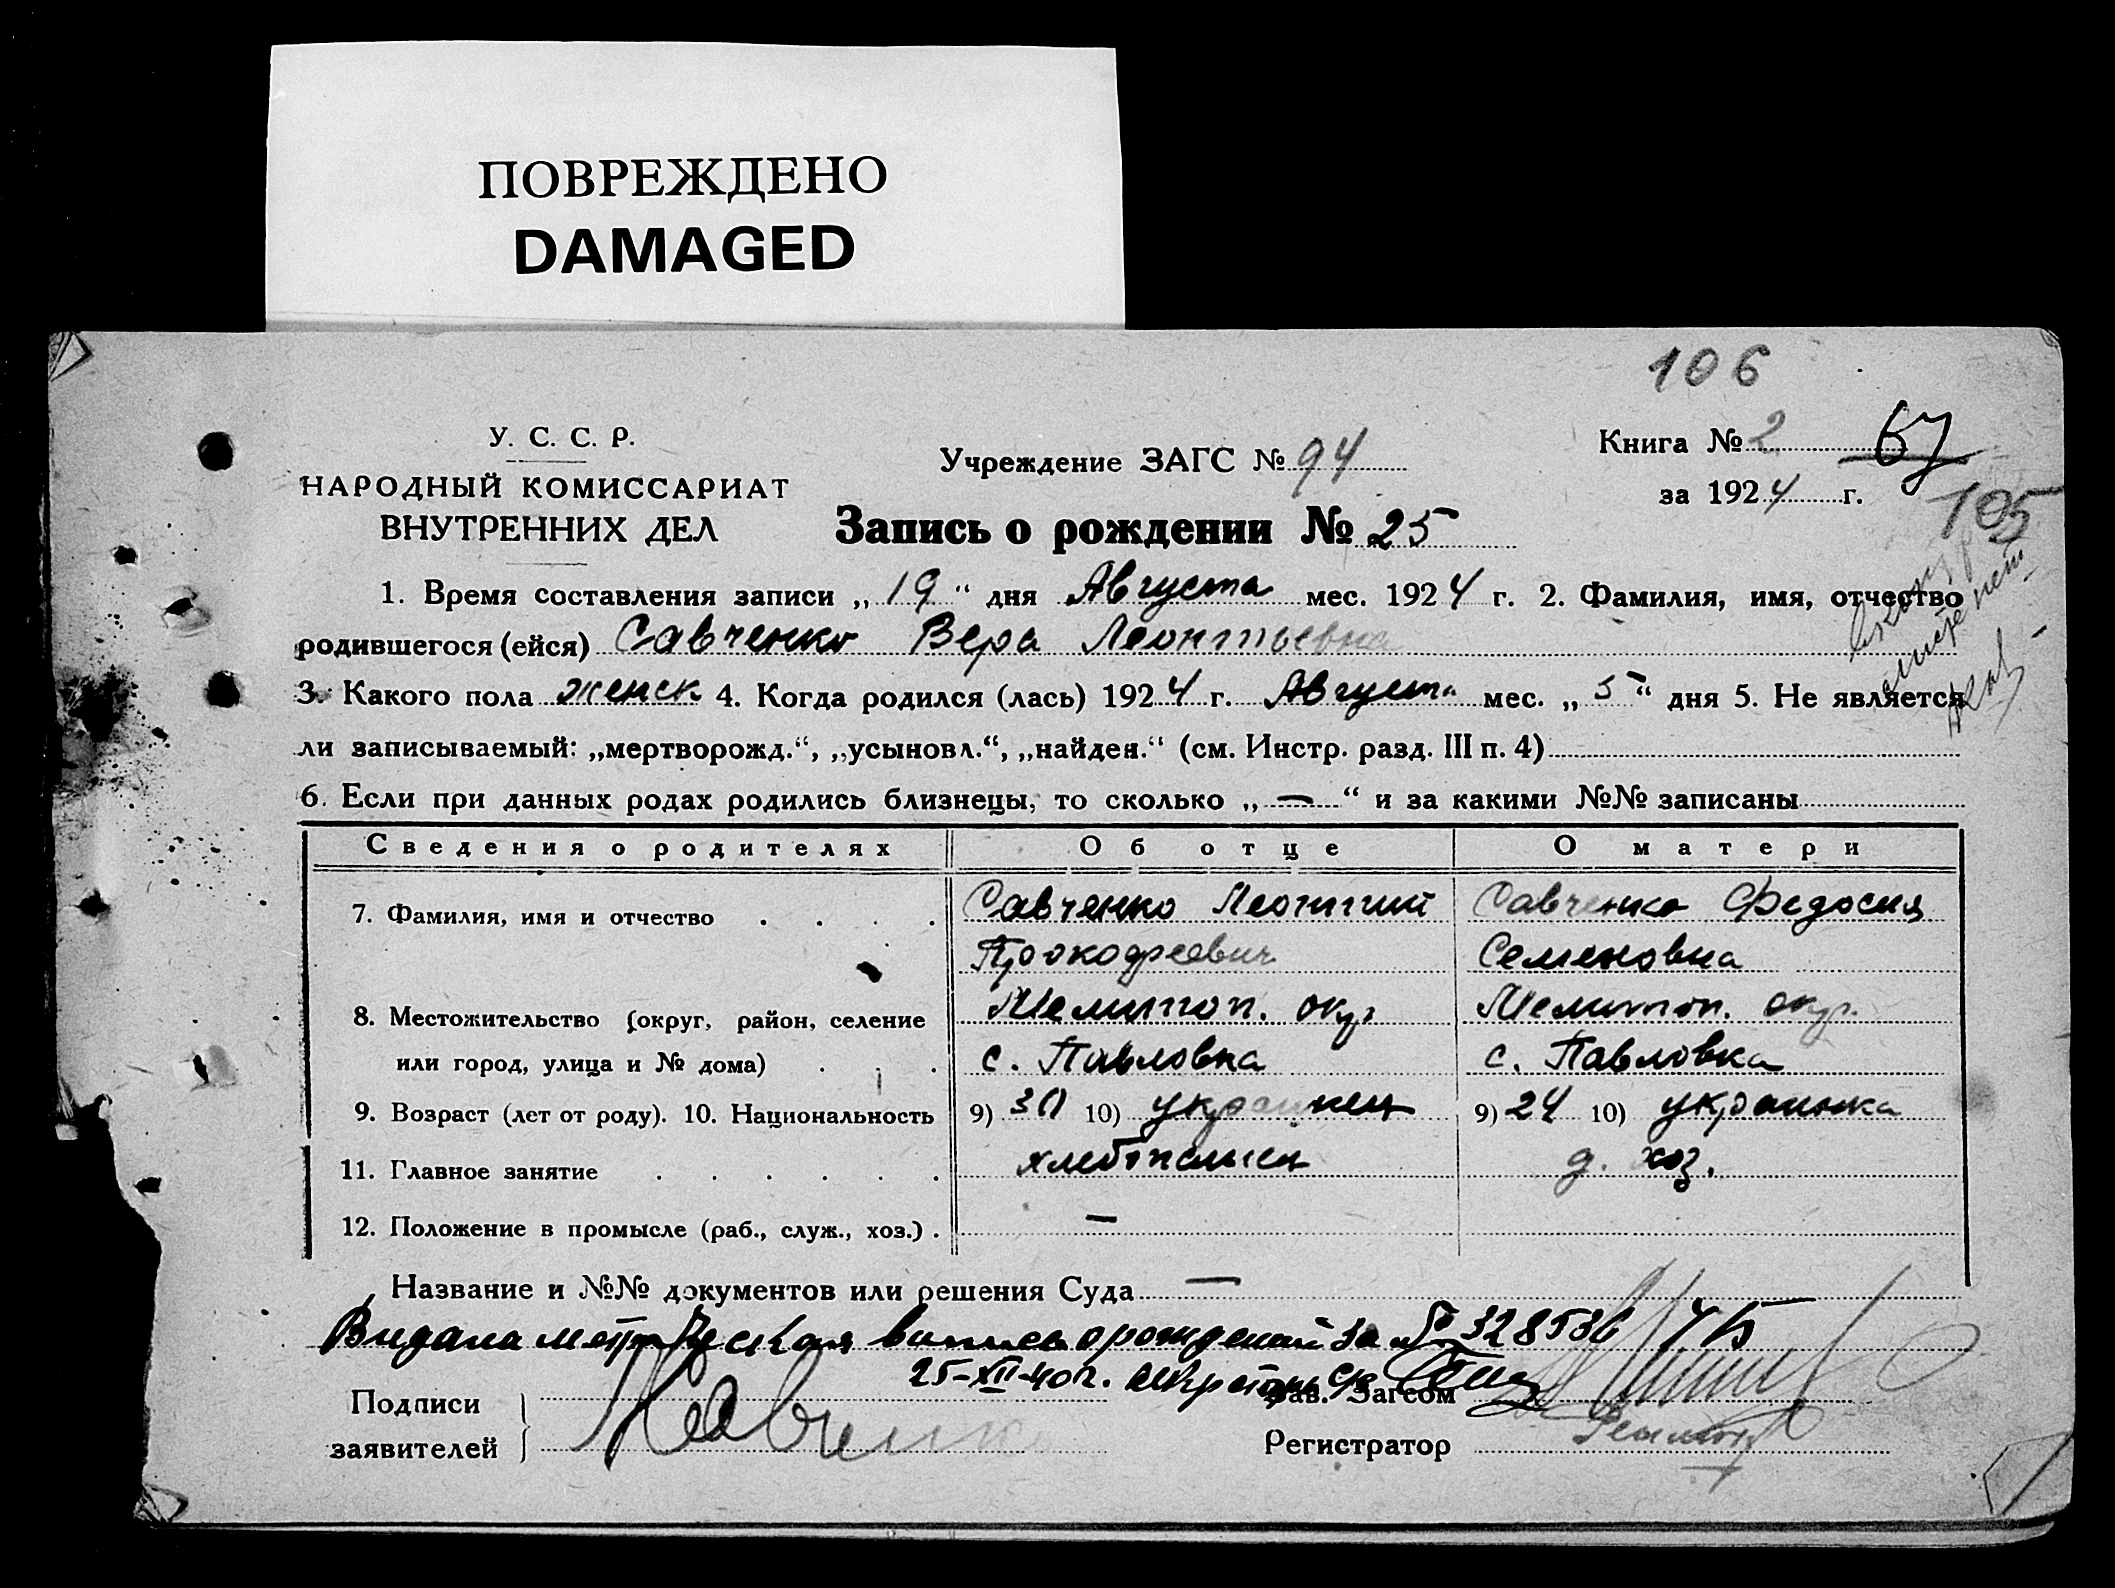 ПОВРЕЖДЕНО
DAMAGED
106
У. С. С. Р.
НАРОДНЫЙ КОМИССАРИАТ
ВНУТРЕННИХ ДЕЛ
Учреждение ЗАГС № 94
Книга № 2 67
за 1924 г.
105
Запись о рождении № 25
1. Время составления записи „19“ дня Августа мес. 1924 г. 2. Фамилия, имя, отчество
родившегося (ейся) Савченко Вера Леонтьевна
3. Какого пола женск 4. Когда родился (лась) 1924 г. Августа мес. „5“ дня 5. Не является
ли записываемый: „мертворожд.“, „усыновл.“, „найден.“ (см. Инстр. разд. III п. 4)
6. Если при данных родах родились близнецы, то сколько „—“ и за какими №№ записаны
Сведения о родителях Об отце О матери
7. Фамилия, имя и отчество . . . . Савченко Леонтий Савченко Федосия
Прокофеевич Семеновна
8. Местожительство (округ, район, селение Мелитоп. окр Мелитоп. окр.
или город, улица и № дома) . . . с. Павловка с. Павловка
9. Возраст (лет от роду). 10. Национальность 9) 30 10) украинец 9) 24 10) украинка
11. Главное занятие . . . . . . хлебопашец д. хоз.
12. Положение в промысле (раб., служ., хоз.) . —
Название и №№ документов или решения Суда —
Видана о рождении за № 328536
25-XII-40 г. секретарь
Подписи
заявителей
Савченко
Зав. Загсом
Регистратор